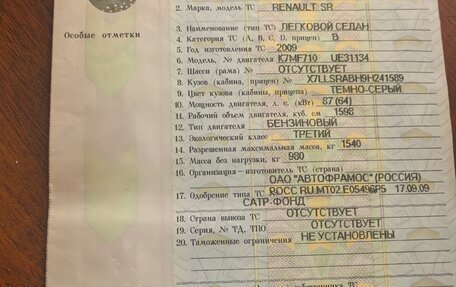 2. Марка, модель ТС RENAULT SR
Особые отметки
3. Наименование (тип ТС) ЛЕГКОВОЙ СЕДАН
4. Категория ТС (A, B, C, D, прицеп) B
5. Год изготовления ТС 2009
6. Модель, № двигателя K7MF710 UE31134
7. Шасси (рама) № ОТСУТСТВУЕТ
8. Кузов (кабина, прицеп) № X7LLSRABH9H241589
9. Цвет кузова (кабины, прицепа) ТЕМНО-СЕРЫЙ
10. Мощность двигателя, л. с. (кВт) 87 (64)
11. Рабочий объем двигателя, куб. см 1598
12. Тип двигателя БЕНЗИНОВЫЙ
13. Экологический класс ТРЕТИЙ
14. Разрешенная максимальная масса, кг 1540
15. Масса без нагрузки, кг 980
16. Организация—изготовитель ТС (страна)
ОАО "АВТОФРАМОС" (РОССИЯ)
17. Одобрение типа ТС № РОСС RU.MT02.E05496P5 17.09.09
САТР-ФОНД
18. Страна вывоза ТС ОТСУТСТВУЕТ
19. Серия, № ТД, ТПО ОТСУТСТВУЕТ
20. Таможенные ограничения НЕ УСТАНОВЛЕНЫ